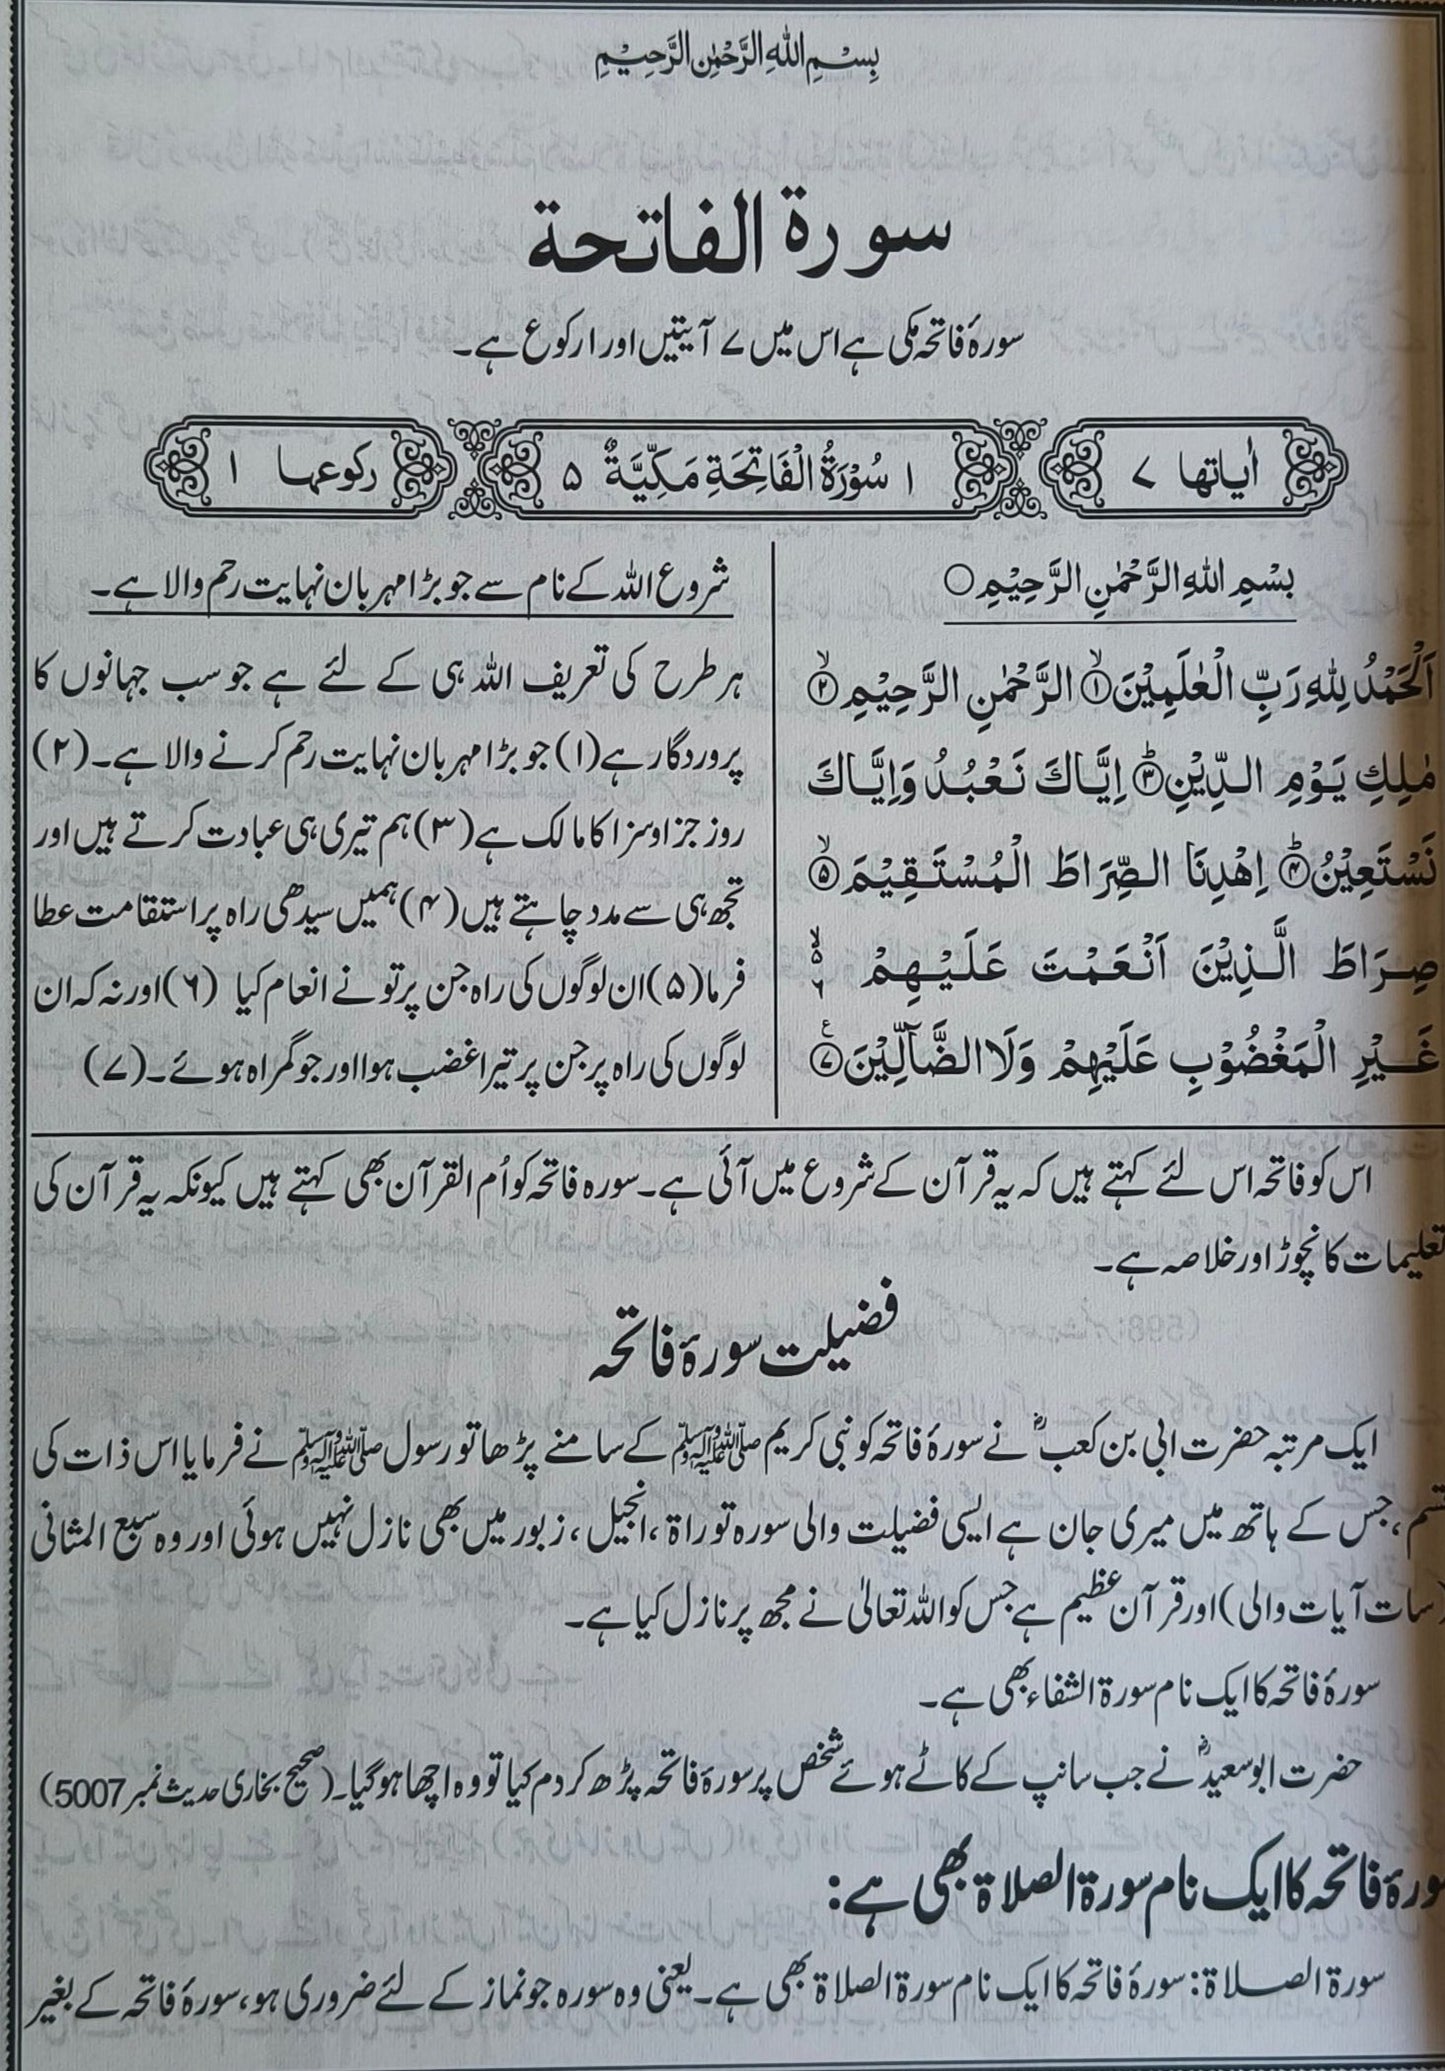 بِسْمِ اللهِ الرَّحْمٰنِ الرَّحِيْمِ
سورة الفاتحة
سورۂ فاتحہ مکی ہے اس میں ۷ آیتیں اور ۱ رکوع ہے۔
اٰیاتها ۷
۱ سُوْرَةُ الْفَاتِحَةِ مَكِّيَّةٌ ۵
رکوعها ۱
بِسْمِ اللهِ الرَّحْمٰنِ الرَّحِيْمِ○
اَلْحَمْدُ لِلّٰهِ رَبِّ الْعٰلَمِيْنَ ۙ﴿۱﴾ الرَّحْمٰنِ الرَّحِيْمِ ۙ﴿۲﴾
مٰلِكِ يَوْمِ الدِّيْنِ ؕ﴿۳﴾ اِيَّاكَ نَعْبُدُ وَاِيَّاكَ
نَسْتَعِيْنُ ؕ﴿۴﴾ اِهْدِنَا الصِّرَاطَ الْمُسْتَقِيْمَ ۙ﴿۵﴾
صِرَاطَ الَّذِيْنَ اَنْعَمْتَ عَلَيْهِمْ ۙ۬ۦ ۶
غَيْرِ الْمَغْضُوْبِ عَلَيْهِمْ وَلَا الضَّآلِّيْنَ ﴿۷﴾ ع
شروع اللہ کے نام سے جو بڑا مہربان نہایت رحم والا ہے۔
ہر طرح کی تعریف اللہ ہی کے لئے ہے جو سب جہانوں کا
پروردگار ہے (۱) جو بڑا مہربان نہایت رحم کرنے والا ہے۔ (۲)
روز جزا وسزا کا مالک ہے (۳) ہم تیری ہی عبادت کرتے ہیں اور
تجھ ہی سے مدد چاہتے ہیں (۴) ہمیں سیدھی راہ پر استقامت عطا
فرما (۵) ان لوگوں کی راہ جن پر تو نے انعام کیا (۶) اور نہ کہ ان
لوگوں کی راہ پر جن پر تیرا غضب ہوا اور جو گمراہ ہوئے۔ (۷)
اس کو فاتحہ اس لئے کہتے ہیں کہ یہ قرآن کے شروع میں آئی ہے۔ سورہ فاتحہ کو اُم القرآن بھی کہتے ہیں کیونکہ یہ قرآن کی
تعلیمات کا نچوڑ اور خلاصہ ہے۔
فضیلت سورۂ فاتحہ
ایک مرتبہ حضرت ابی بن کعبؓ نے سورۂ فاتحہ کو نبی کریم ﷺ کے سامنے پڑھا تو رسول ﷺ نے فرمایا اس ذات کی
قسم، جس کے ہاتھ میں میری جان ہے ایسی فضیلت والی سورہ توراۃ، انجیل، زبور میں بھی نازل نہیں ہوئی اور وہ سبع المثانی
(سات آیات والی) اور قرآن عظیم ہے جس کو اللہ تعالیٰ نے مجھ پر نازل کیا ہے۔
سورۂ فاتحہ کا ایک نام سورة الشفاء بھی ہے۔
حضرت ابو سعیدؓ نے جب سانپ کے کاٹے ہوئے شخص پر سورۂ فاتحہ پڑھ کر دم کیا تو وہ اچھا ہو گیا۔ (صحیح بخاری حدیث نمبر 5007)
سورۂ فاتحہ کا ایک نام سورة الصلاة بھی ہے:
سورة الصلاة: سورۂ فاتحہ کا ایک نام سورة الصلاة بھی ہے۔ یعنی وہ سورہ جو نماز کے لئے ضروری ہو، سورۂ فاتحہ کے بغیر